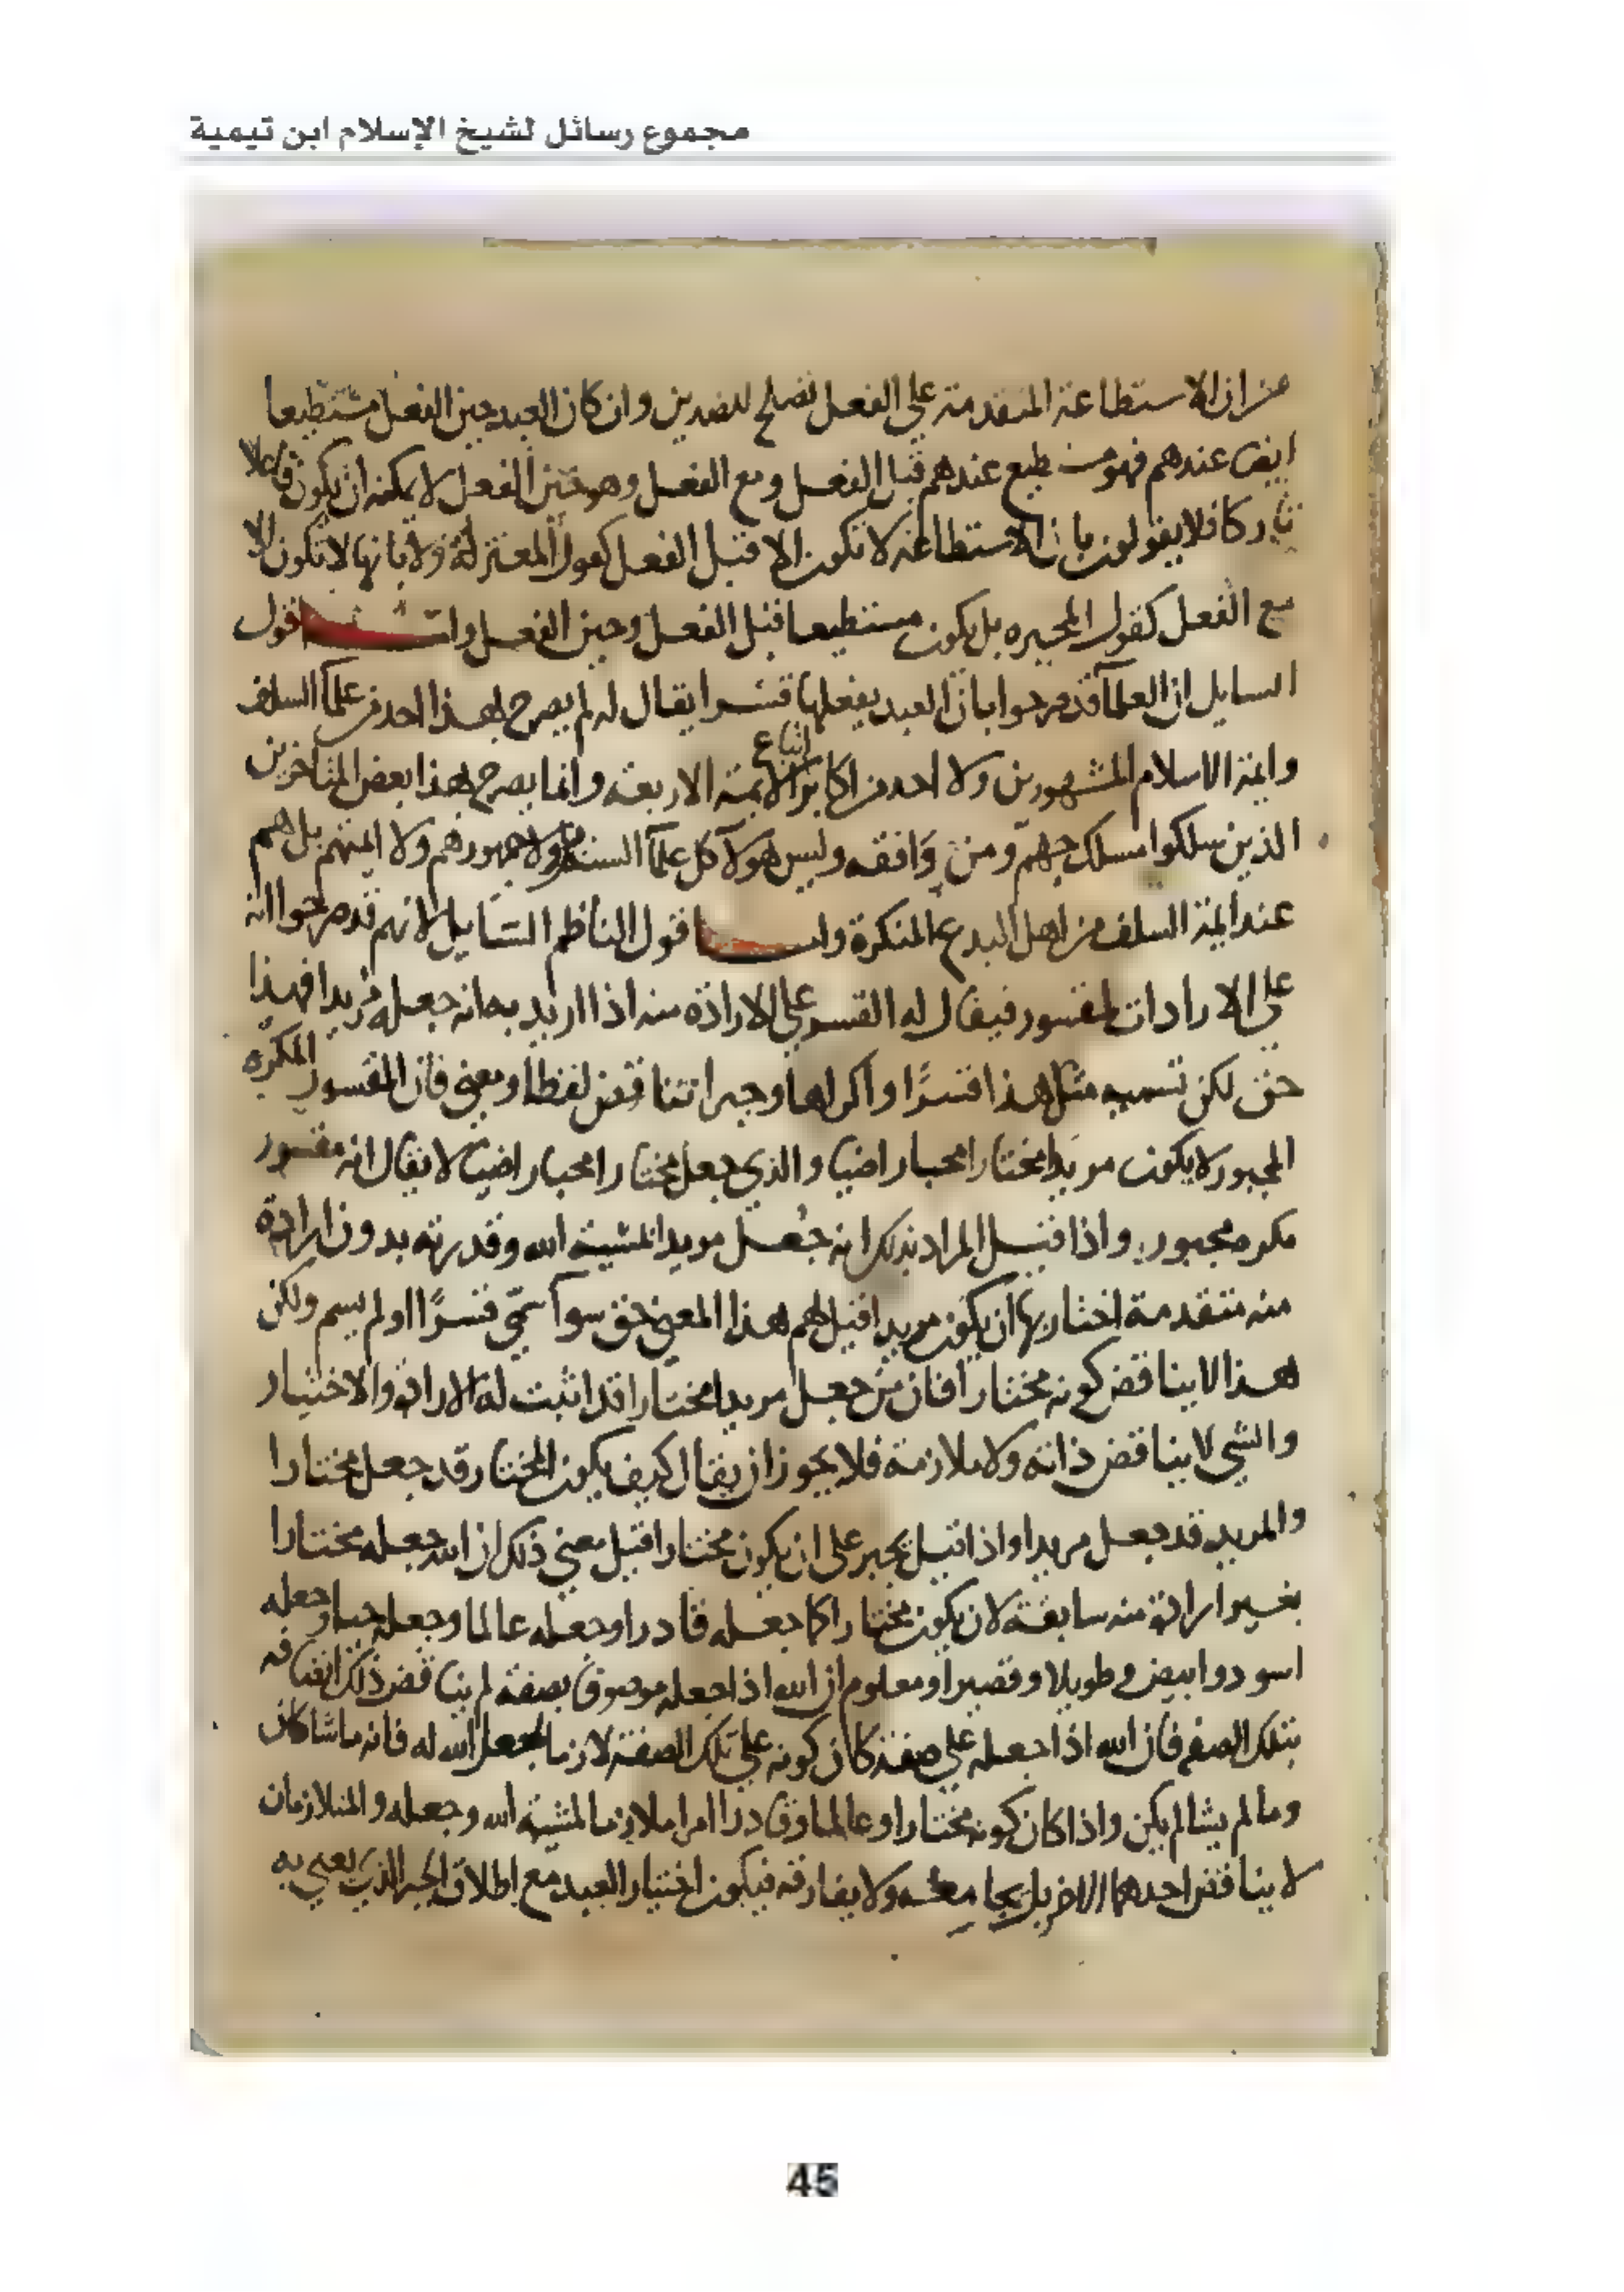 مجموع رسائل لشيخ الإسلام ابن تيمية
من ان الاستطاعة المتقدمة على الفعل تصلح للضدين وان كان العبد حين الفعل مستطيعا
ايضا عندهم فهو مستطيع عندهم قبل الفعل ومع الفعل وهو حين الفعل لا يمكنه ان يكون فاعلا
تاركا فلا يقولون بان الاستطاعة لا تكون الا قبل الفعل كقول المعتزلة ولا بانها لا تكون الا
مع الفعل كقول المجبره بل يكون مستطيعا قبل الفعل وحين الفعل واما قول
السايل ان العلما قد صرحوا بان العبد يفعلها قسرا يقال له لم يصرح بهذا احد من علما السلف
وايمة الاسلام المشهورين ولا احد من اكابر اتباع الايمة الاربعة وانما يصرح بهذا بعض المتاخرين
الذين سلكوا مسلك جهم ومن وافقه وليس هولا كل علما السنة ولا جمهورهم ولا ايمتهم بل هم
عند ايمة السلف من اهل البدع المنكرة واما قول الناظم السايل لانهم قد صرحوا انه
على الارادات لمقسور فيقال له القسر على الارادة منه اذا اريد به انه جعله مريدا فهذا
حق لكن تسميه مثل هذا قسرًا واكراها وجبرا تناقض لفظا ومعنى فان المقسور المكره
المجبور لا يكون مريدا مختارا محبا راضيا والذي جعل مختارا محبا راضيا لا يقال انه مقسور
مكره مجبور واذا قيل المراد بذلك انه جُعل مريدا لمشيئة الله وقدرته بدون ارادة
منه متقدمة اختار بها ان يكون مريدا قيل لهم هذا المعنى حق سوآ سمّي قسرًا او لم يسم ولكن
هذا لا يناقض كونه مختارا فان من جعل مريدا مختارا قد اثبت له الارادة والاختيار
والشي لا يناقض ذاته ولا ملازمه فلا يجوز ان يقال كيف يكون المختار قد جعل مختارا
والمريد قد جعل مريدا واذا قيل يجبر على ان يكون مختارا قيل معنى ذلك ان الله جعله مختارا
بغير ارادة منه سابقة لان يكون مختارا كما جعله قادرا وجعله عالما وجعله حيا وجعله
اسود وابيض وطويلا وقصيرا ومعلوم ان الله اذا جعله موصوفا بصفة لم يناقض ذلك اتصافه
بتلك الصفه فان الله اذا جعله على صفة كان كونه على تلك الصفة لازما لجعل الله له فانه ما شا كان
وما لم يشا لم يكن واذا كان كونه مختارا وعالما وقادرا امرا ملازما لمشيئة الله وجعله والمتلازمان
لا يناقض احدهما الاخر بل يجامعه ولا يفارقه فيكون اختيار العبد مع اطلاق الجبر الذي يعني به
45